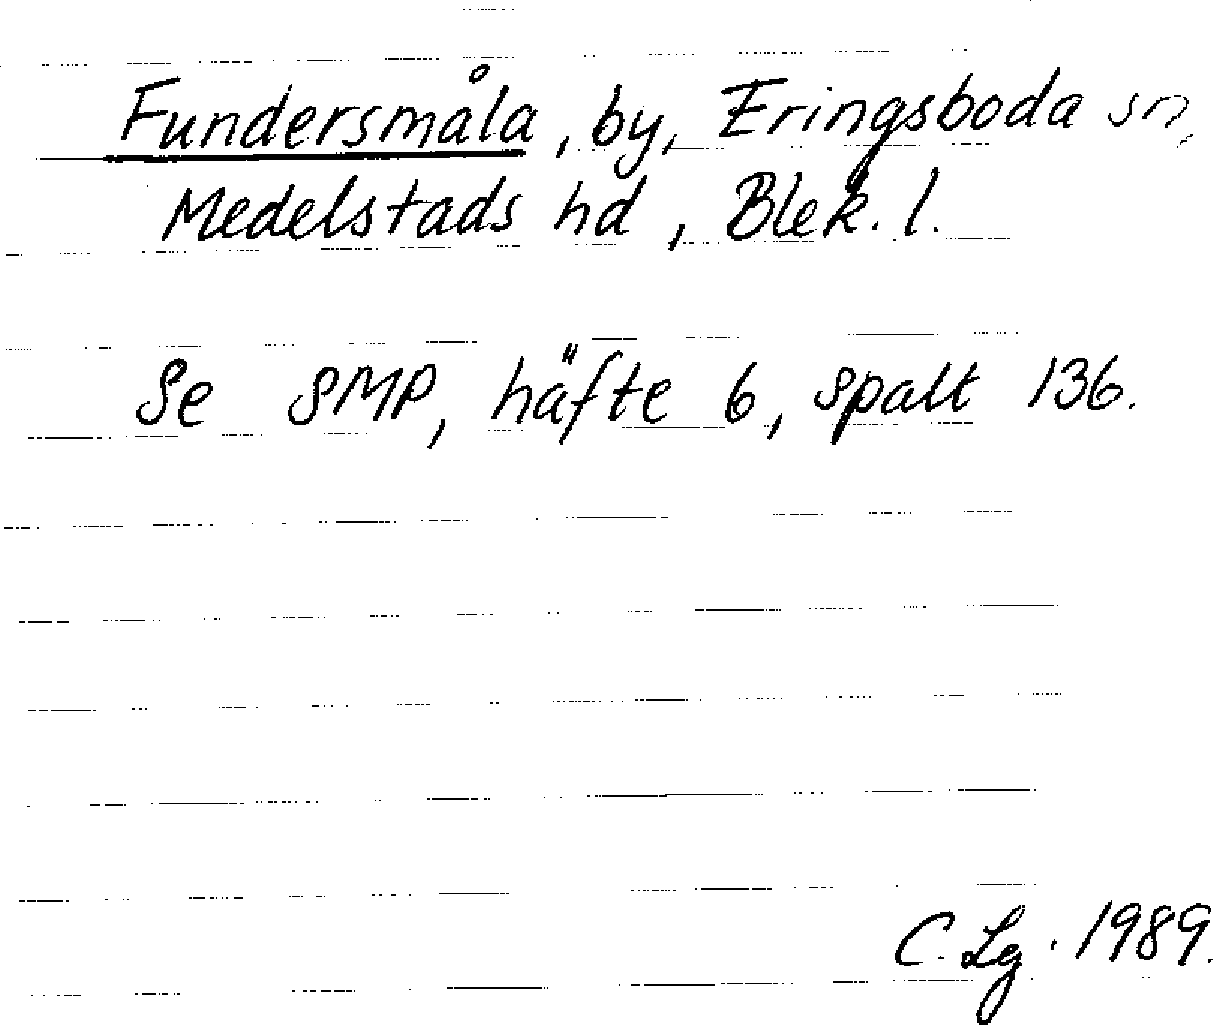 Fundersmåla, by, Eringsboda sn,
Medelstads hd, Blek. l.
Se SMP, häfte 6, spalt 136.
C. Lg. 1989.